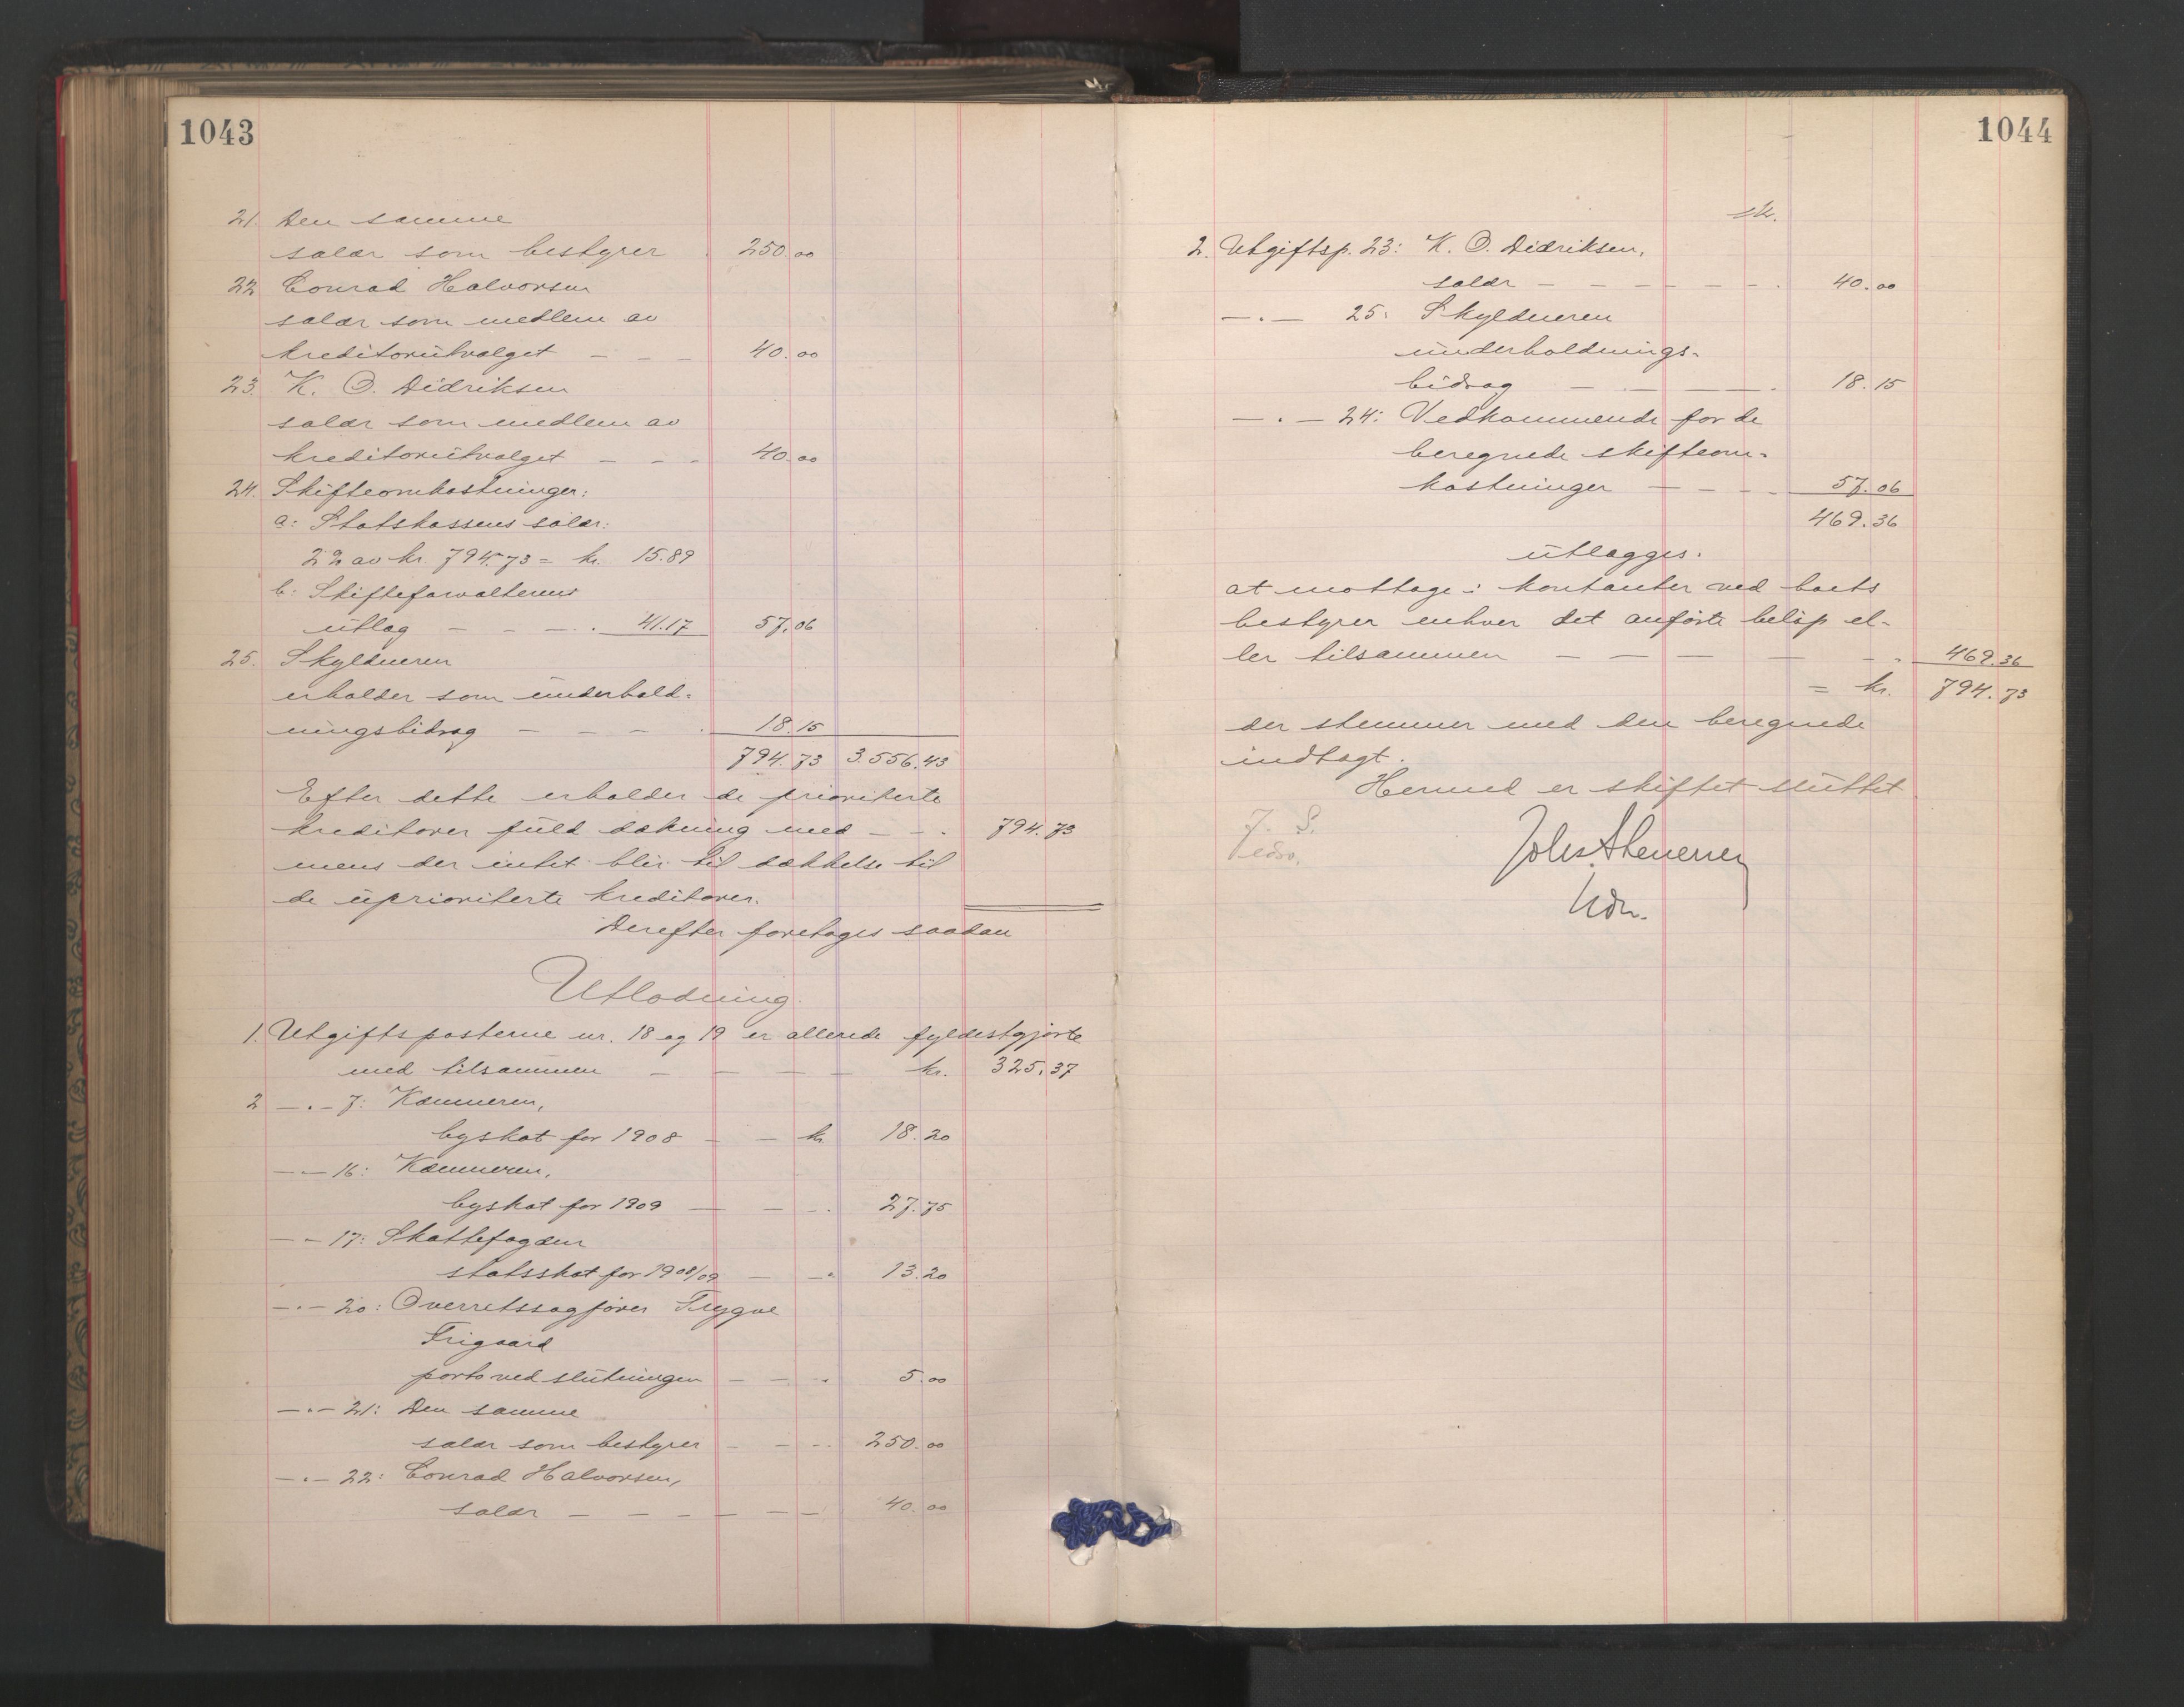 1043
21. Den samme
salær som bestyrer 250.00
22 Conrad Halvorsen
salær som medlem av
kreditorutvalget - - - 40.00
23. K. O. Didriksen
salær som medlem av
kreditorutvalget - - - 40.00
24. Skifteomkostninger:
a: Statskassens salær:
2% av kr. 794.73 = kr. 15.89
b: Skifteforvalterens
utlæg - - - . 41.17 57.06
25. Skyldneren
erholder som underhold-
ningsbidrag - - - . 18.15
794.73 3.556.43
Efter dette erholder de prioriterte
kreditorer fuld dækning med - - . 794.73
mens der intet blir til dækkelse til
de uprioriterte kreditorer.
Derefter foretages saadan
Utlodning.
1. Utgiftsposterne nr. 18 og 19 er allerede fyldestgjorte
med tilsammen - - - - kr. 325.37
2 -.- 7: Kæmneren,
byskat for 1908 - - kr 18.20
-.- 16: Kæmneren,
byskat for 1909 - - - . 27.75
-.- 17: Skattefogden
statsskat for 1908/09 - - . 13.20
-.- 20: Overretssagfører Trygve
Frigaard
porto ved slutningen - - . 5.00
-.- 21: Den samme
salær som bestyrer - - - . 250.00
-.- 22: Conrad Halvorsen,
salær - - - - - - 40.00
1044
2. Utgiftsp. 23: K. O. Didriksen,
salær - - - - - - . 40.00
-.- 25: Skyldneren
underholdnings-
bidrag - - - . 18.15
-.- 24: Vedkommende for de
beregnede skifteom-
kostninger - - - - 57.06
469.36
utlægges.
at mottage i kontanter ved boets
bestyrer enhver det anførte beløp el-
ler tilsammen - - - - - . 469.36
= kr. 794.73
der stemmer med den beregnede
indtægt.
Hermed er skiftet sluttet